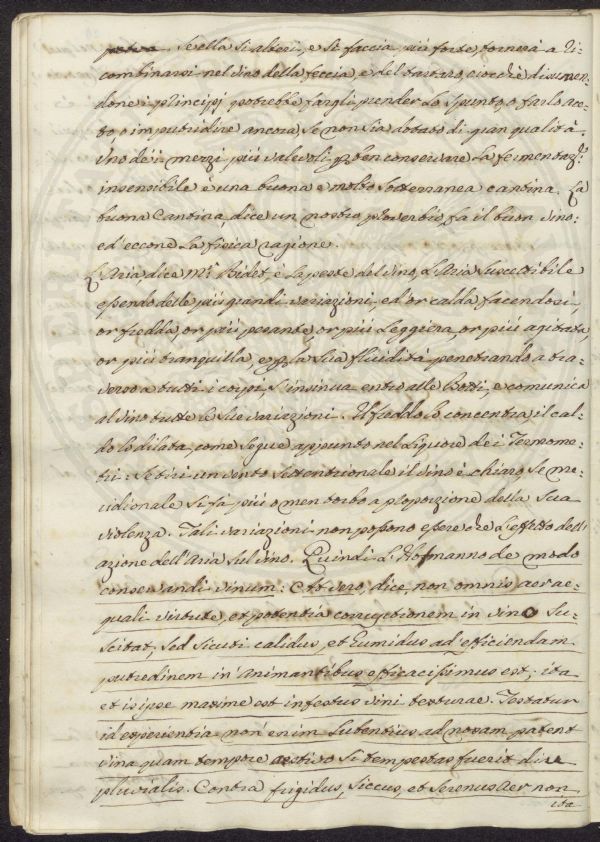 Se ella si alteri, e si faccia più forte, tornerà a ri=
combinarsi nel vino della feccia, e del tartaro, cioechè disunen=
done i principj potrebbe fargli prender lo spunto, o farlo ace=
to, o imputridire ancora se non sia dotato di gran qualità.
Uno dei mezzi più valevoli p ben conservare la fermentaz.e
insensibile è una buona e molto sotterranea cantina. La
buona Cantina, dice un nostro proverbio, fa il buon vino=
ed eccone la fisica ragione.
L'Aria dice Mr. Bidet, è la peste del vino, L'Aria suscettibile
essendo delle più grandi variazioni ed or calda facendosi,
or fredda, or più pesante, or più leggiera, or più agitata,
or più tranquilla, e p la sua fluidità penetrando a tra=
verso a tutti i corpi, s'insinua entro alle Botti, e comunica
al vino tutte le sue variazioni. Il freddo lo concentra, il cal=
do lo dilata, come segue appunto nel liquore dei Termome=
tri: se tiri un vento settentrionale il vino è chiaro, se me=
ridionale si fà più o men torbo a proporzione della sua
violenza. Tali variazioni non possono essere che l'effetto dell'
azione dell'Aria sul vino. Quindi L'Hofmanno de modo
conservandi vinum: At vero, dice, non omnis aer ae=
quali virtute, et potentia corruptionem in vino su=
scitat, sed sicuti calidus, et humidus ad efficiendam
putredinem in animantibus efficacissimus est; ita
et is ipse maxime est infestus vini texturae. Testatur
id experientia non enim lubentius ad noxam patent
vina quam tempore aestivo si tempestas fuerit diu
pluvialis. Contra frigidus, siccus, et serenus aer non
ita